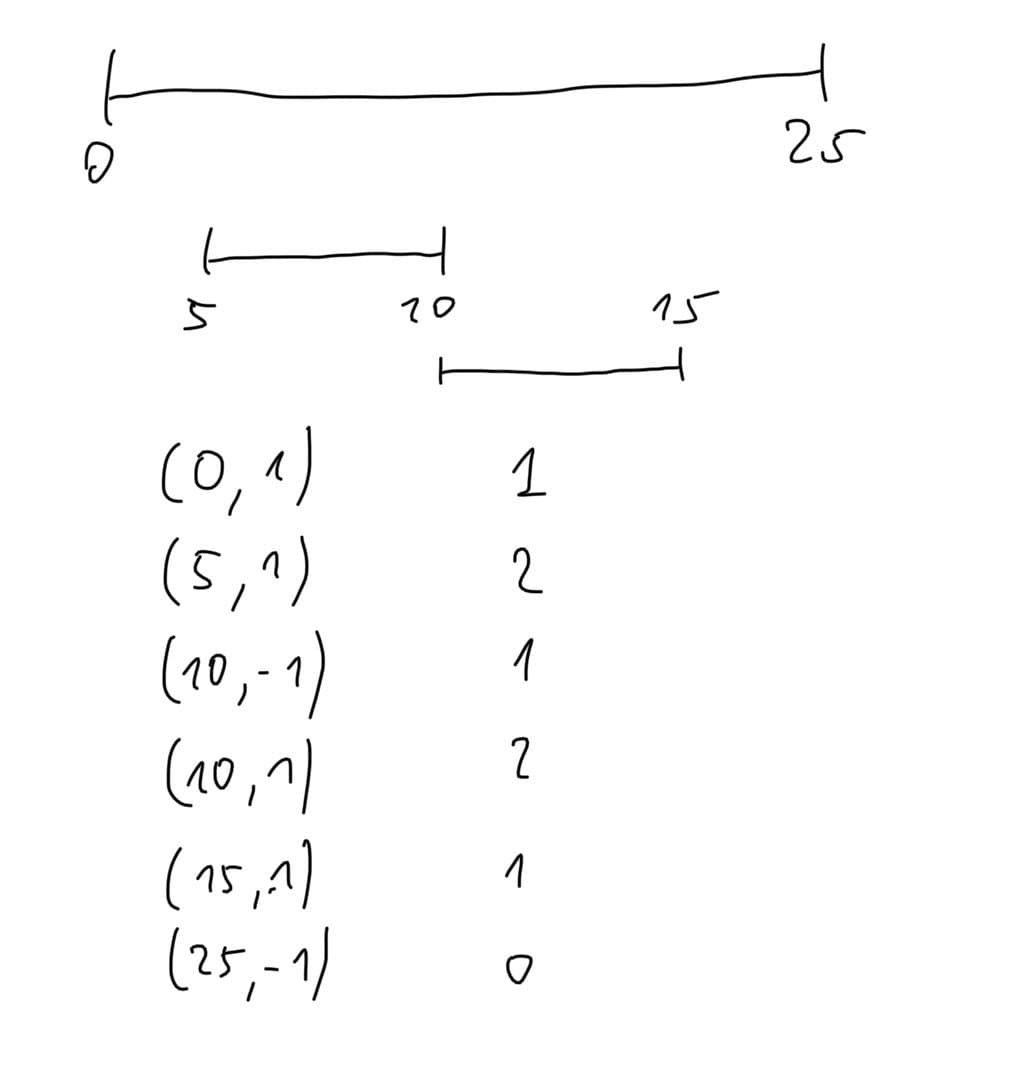 0 25
5 10 15
(0,1) 1
(5,1) 2
(10,-1) 1
(10,1) 2
(15,-1) 1
(25,-1) 0